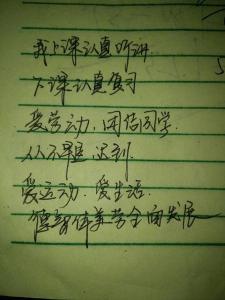 我上课认真听讲
下课认真复习
爱劳动，团结同学.
从不早退迟到.
爱运动，爱生活.
德智体美劳全面发展